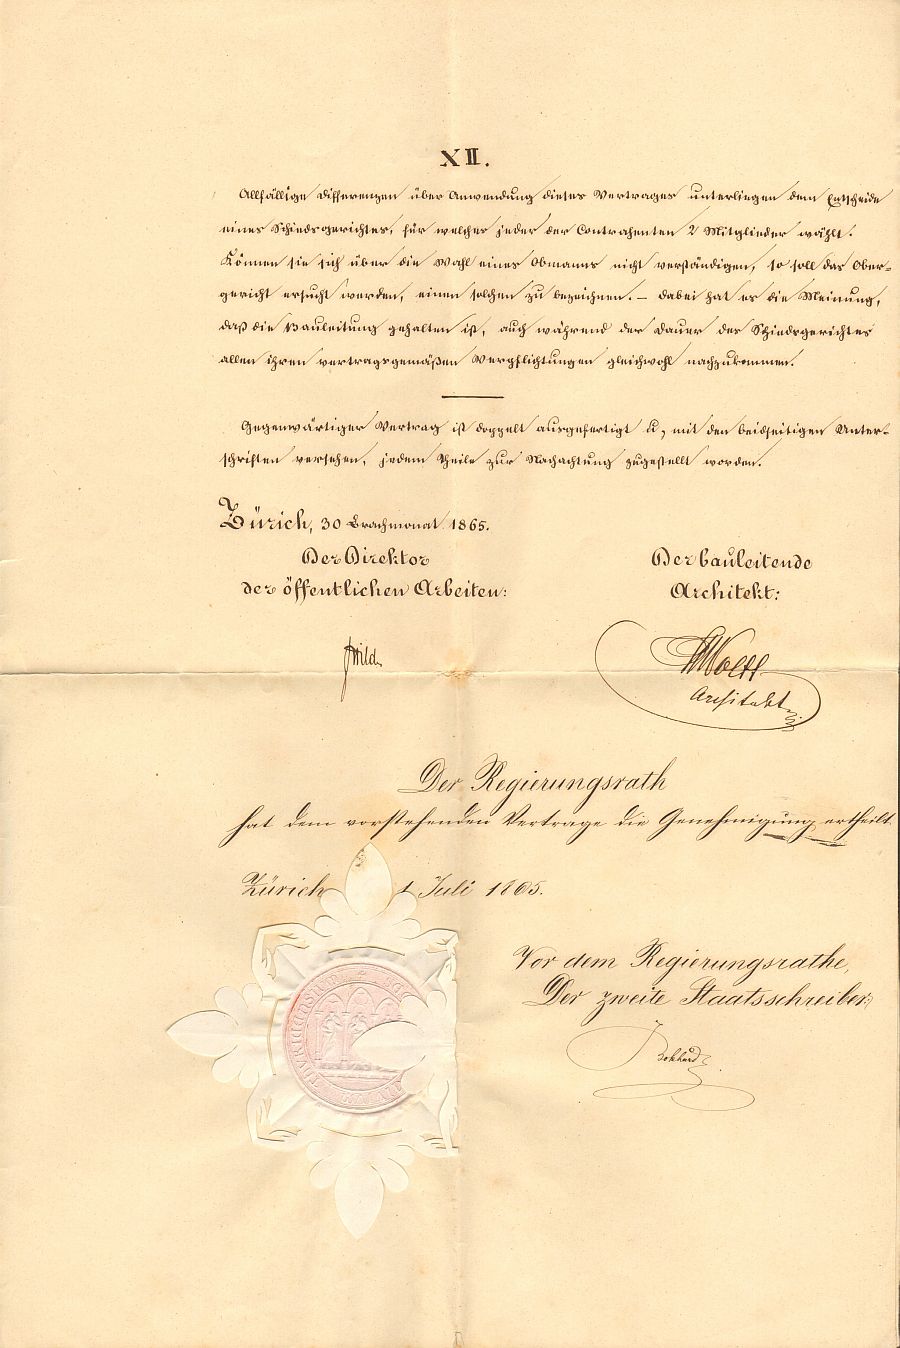 XII.
Allfällige Differenzen über Anwendung dieses Vertrages unterliegen dem Entscheide
eines Schiedsgerichtes, für welches jeder der Contrahenten 2 Mitglieder wählt.
Können sie sich über die Wahl eines Obmanns nicht verständigen, so soll das Ober-
gericht ersucht werden, einen solchen zu bezeichnen. – Dabei hat es die Meinung,
daß die Bauleitung gehalten ist, auch während der Dauer des Schiedsgerichtes
allen ihren vertragsgemäßen Verpflichtungen gleichwohl nachzukommen.
Gegenwärtiger Vertrag ist doppelt ausgefertigt u, mit den beidseitigen Unter-
schriften versehen, jedem Theile zur Nachachtung zugestellt worden.
Zürich, 30 Brachmonat 1865.
Der Direktor
der öffentlichen Arbeiten:
Der bauleitende
Architekt:
Wild
Wolff
Architekt
Der Regierungsrath
hat dem vorstehenden Vertrage die Genehmigung ertheilt.
Zürich 1 Juli 1865.
Vor dem Regierungsrathe,
Der zweite Staatsschreiber: